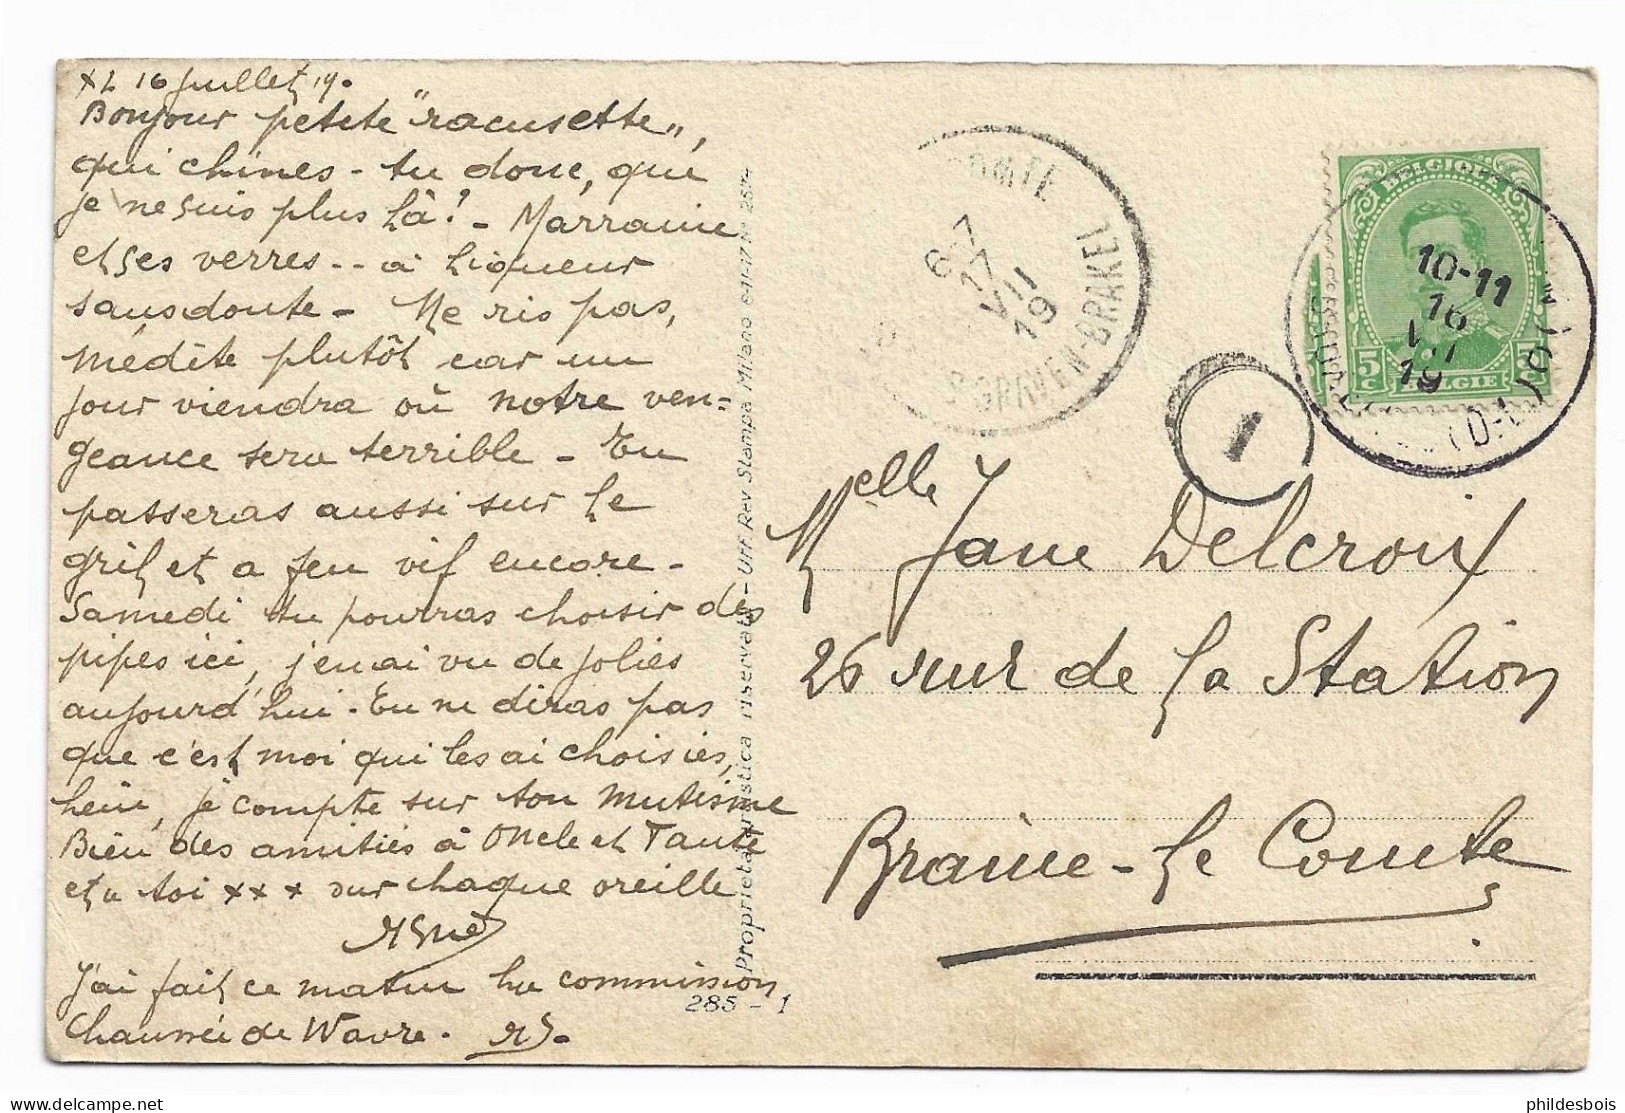 XL 16 juillet 19.
Bonjour petite "racusette",
qui chines-tu donc, que
je ne suis plus là! - Marraine
et ses verres -- à liqueur
sans doute - Ne ris pas,
médite plutôt car un
jour viendra où notre ven=
geance sera terrible - Tu
passeras aussi sur le
gril et a feu vif encore -
Samedi tu pourras choisir des
pipes ici, j'en ai vu de jolies
aujourd'hui. Tu ne diras pas
que c'est moi qui les ai choisies,
hein, je compte sur ton mutisme
Bien des amitiés à Oncle et Tante
et a toi x x x sur chaque oreille
J'ai fait ce matin la commission
Chaussée de Wavre.
Proprietà artistica riservata - Uff Rev Stampa Milano 6-11-17 N
285 - 1
COMTE
6-7
17
VII
19
'S GRAVEN-BRAKEL
BELGIQUE
5 C
5 C
BELGIE
10-11
16
VII
19
1
Melle Jane Delcroix
26 rue de la Station
Braine-le Comte
philesbois
delcampe.net